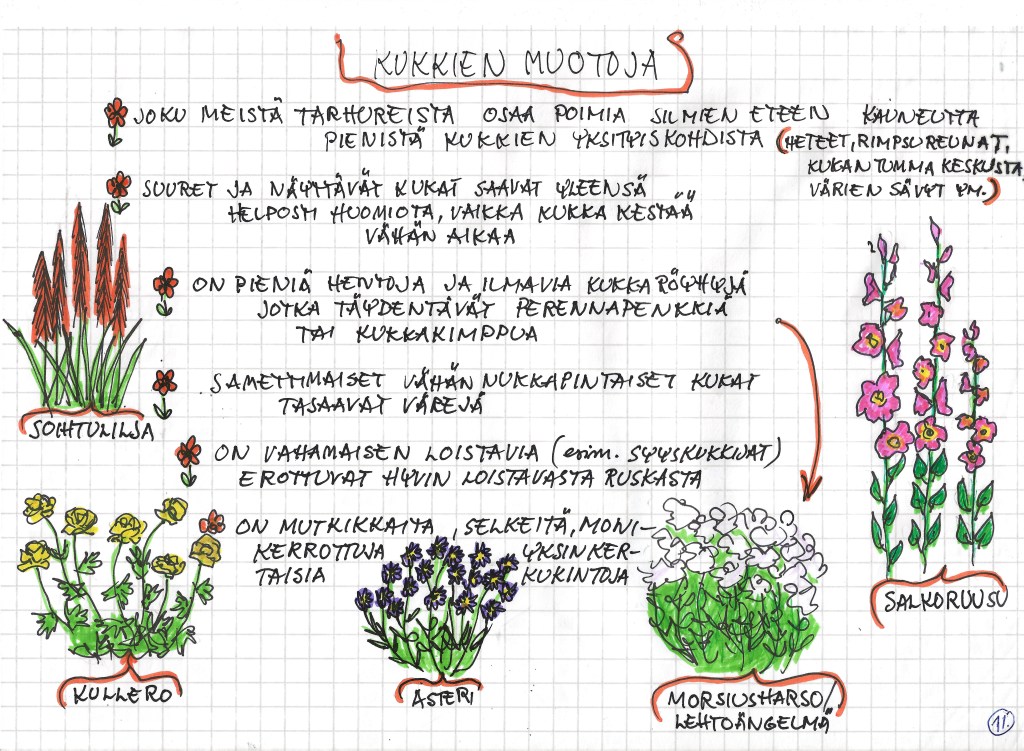 KUKKIEN MUOTOJA
JOKU MEISTÄ TARHUREISTA OSAA POIMIA SILMIEN ETEEN KAUNEUTTA
PIENISTÄ KUKKIEN YKSITYISKOHDISTA (HETEET, RIMPSUREUNAT,
KUKAN TUMMA KESKUSTA,
VÄRIEN SÄVYT YM.)
SUURET JA NÄYTTÄVÄT KUKAT SAAVAT YLEENSÄ
HELPOSTI HUOMIOTA, VAIKKA KUKKA KESTÄÄ
VÄHÄN AIKAA
ON PIENIÄ HENTOJA JA ILMAVIA KUKKARÖYHYJÄ
JOTKA TÄYDENTÄVÄT PERENNAPENKKIÄ
TAI KUKKAKIMPPUA
SAMETTIMAISET VÄHÄN NUKKAPINTAISET KUKAT
TASAAVAT VÄREJÄ
SOIHTULILJA
ON VAHAMAISEN LOISTAVIA (erim. SYYSKUKKIJAT)
EROTTUVAT HYVIN LOISTAVASTA RUSKASTA
ON MUTKIKKAITA, SELKEITÄ, MONI-
KERROTTUJA YKSINKER-
TAISIA KUKINTOJA
SALKORUUSU
KULLERO
ASTERI
MORSIUSHARSO/
LEHTOÄNGELMÄ
11.